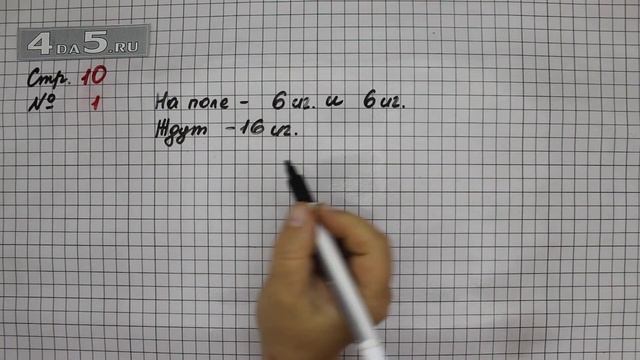 4ДА5.RU
Стр. 10
№ 1
На поле - 6 иг. и 6 иг.
Ждут - 16 иг.